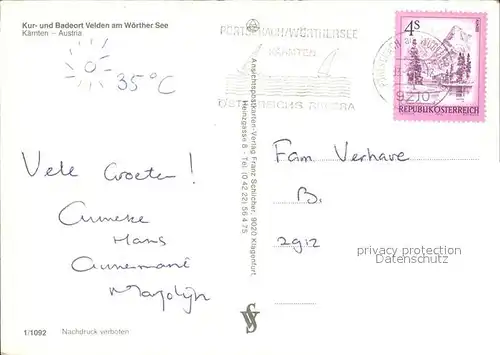 Kur- und Badeort Velden am Wörther See
Kärnten – Austria
35°C
Vele Groeten!
Anneke
Hans
Annemarie
Marjolijn
1/1092 Nachdruck verboten
Ansichtspostkarten-Verlag Franz Schilcher, 9020 Klagenfurt,
Heinzgasse 8 - Tel. (0 42 22) 56 4 75
PÖRTSCHACH/WÖRTHERSEE
KÄRNTEN
ÖSTERREICHS RIVIERA
9210
4S
REPUBLIK ÖSTERREICH
Fam Verhave
B.
privacy protection